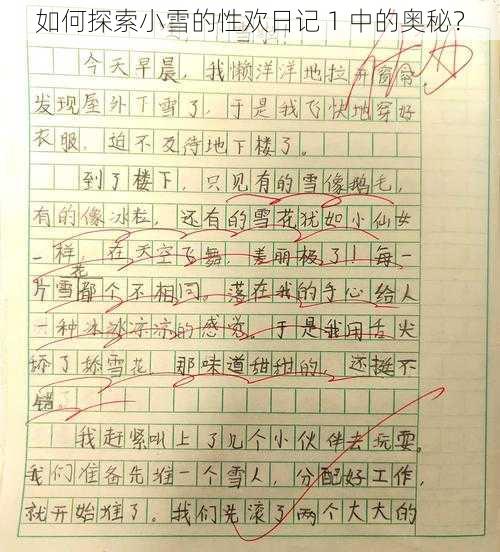 如何探索小雪的性欢日记 1 中的奥秘？
今天早晨，我懒洋洋地拉开窗帘
发现屋外下雪了，于是我飞快地穿好
衣服，迫不及待地下楼了。
到了楼下，只见有的雪像鹅毛，
有的像冰粒，还有的雪花犹如小仙女
一样，在天空飞舞，美丽极了！每一
片雪花都个不相同。落在我的手心给人
一种冰冰凉凉的感觉。于是我用舌尖
舔了舔雪花，那味道甜甜的，还挺不
错。
我赶紧叫上了几个小伙伴去玩耍。
我们准备先堆一个雪人，分配好工作，
就开始堆了。我们先滚了两个大大的